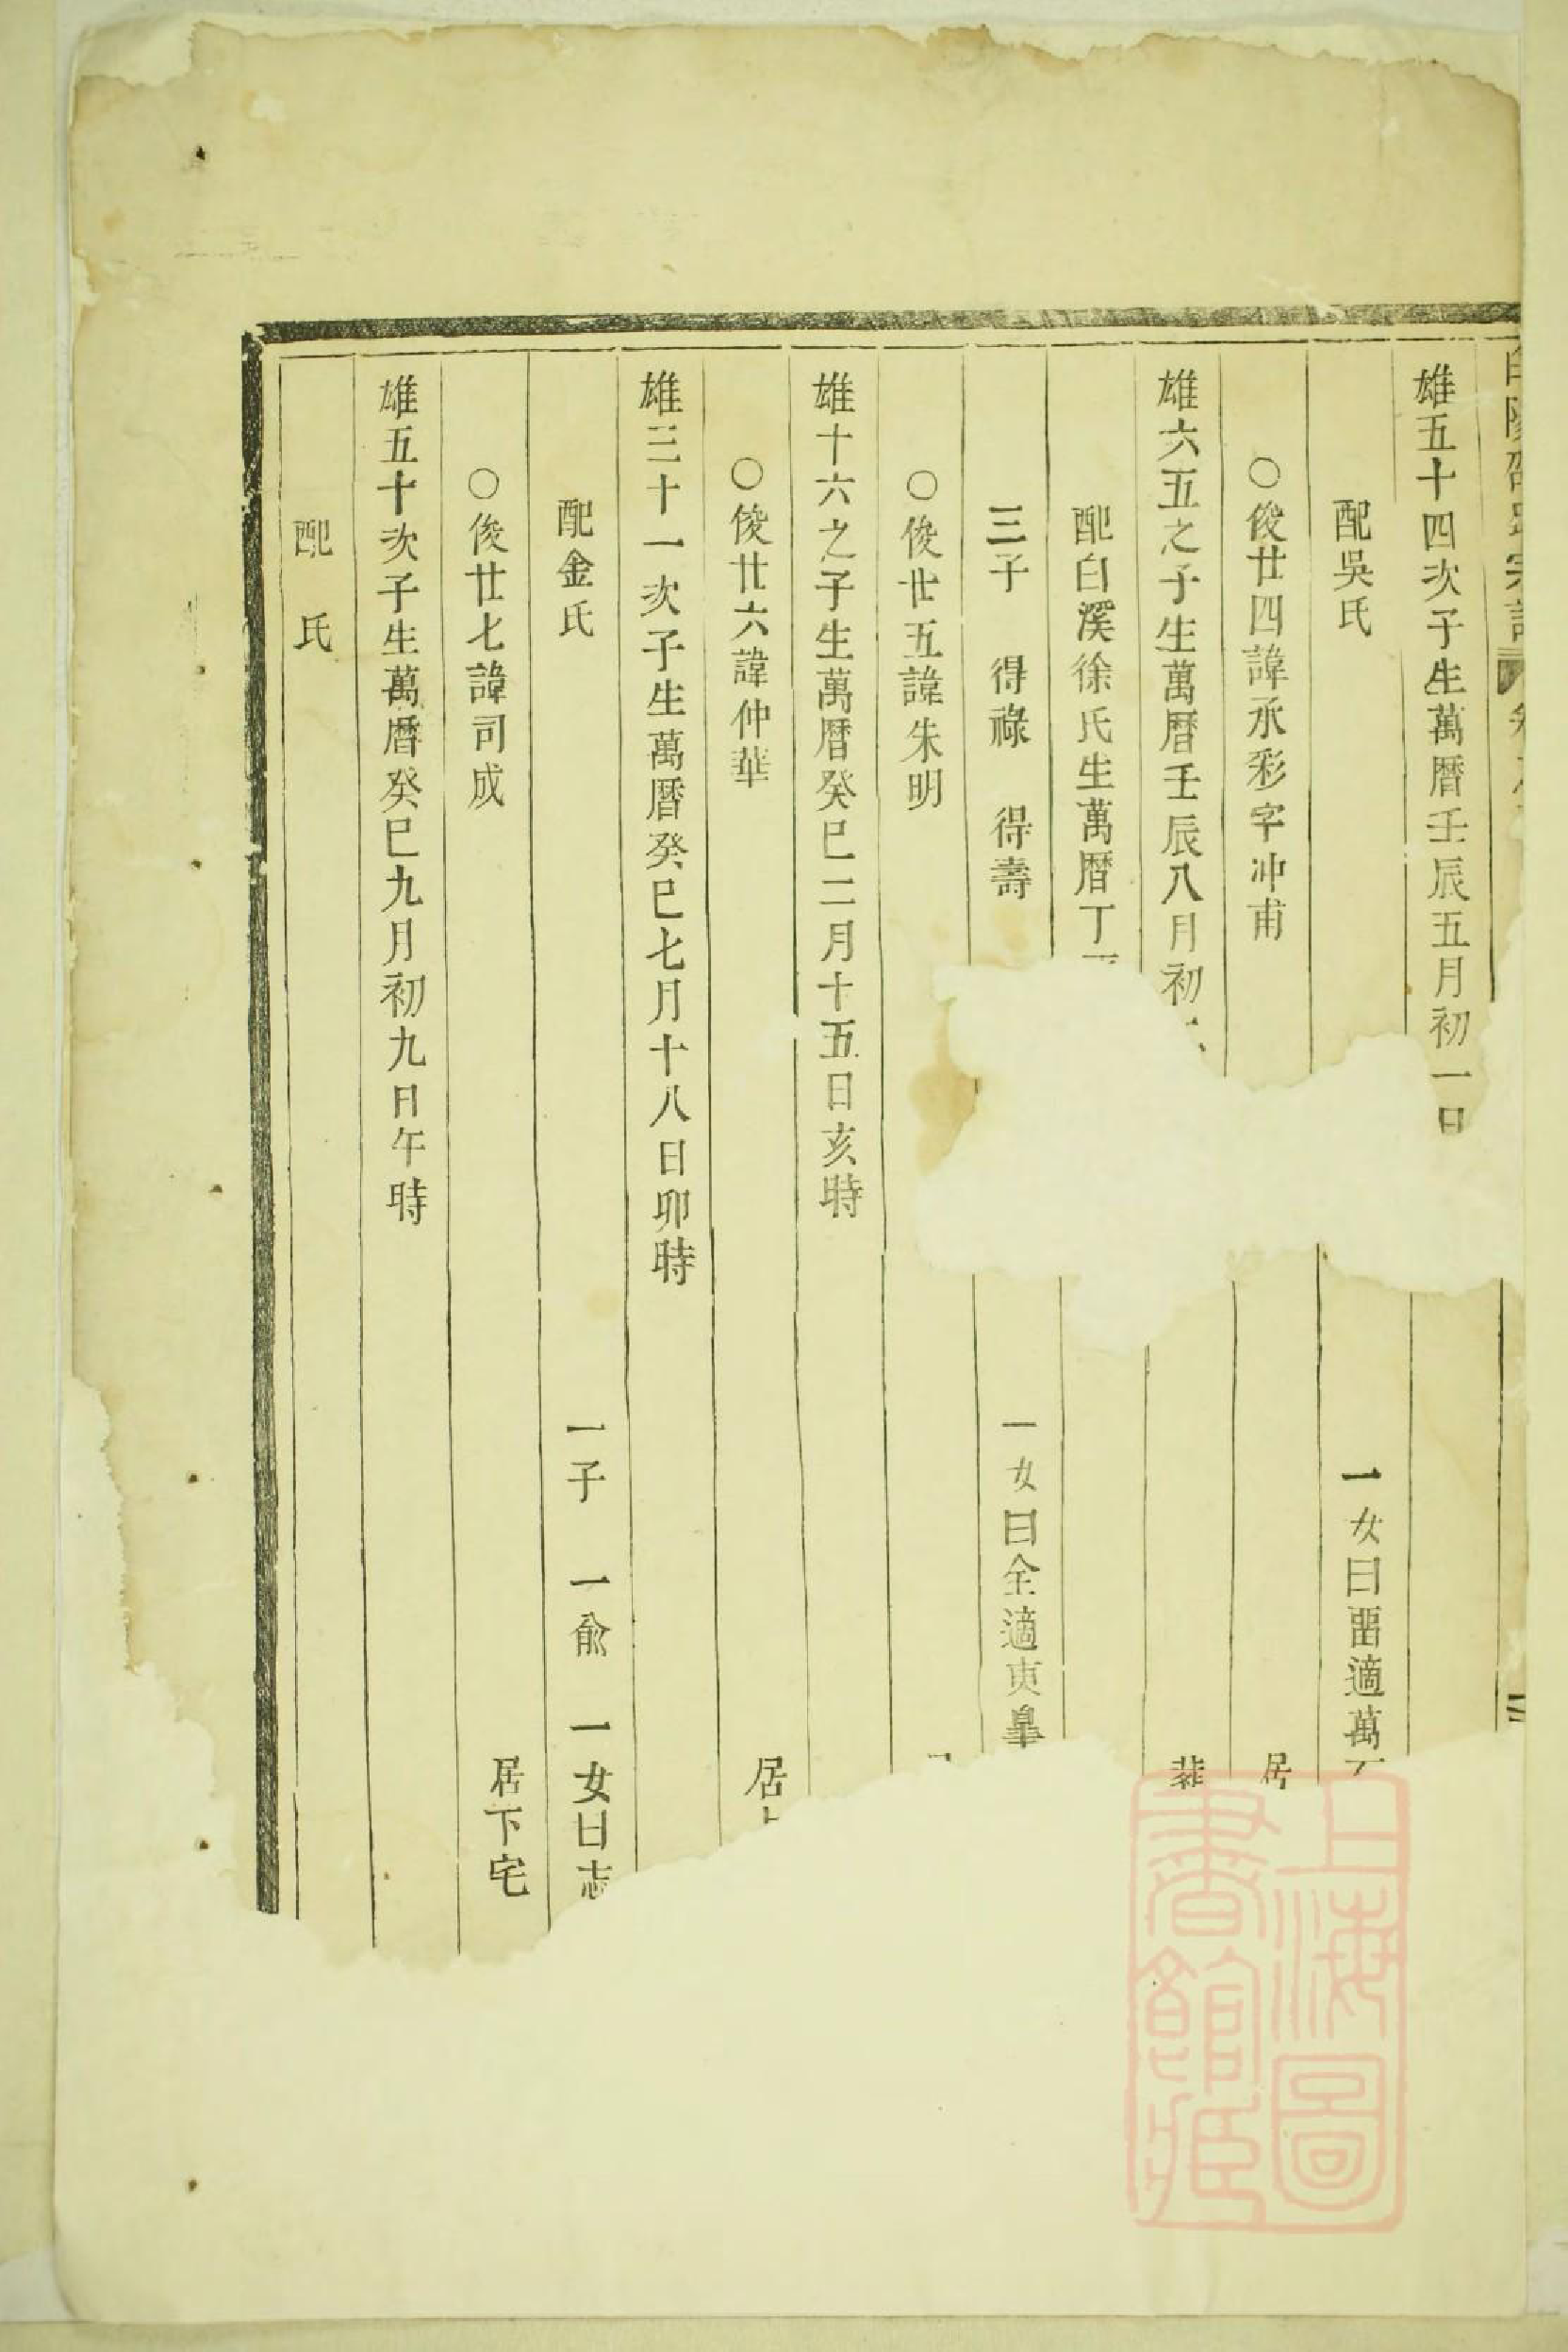 雄五十四次子生萬曆壬辰五月初一日
配吳氏 一女曰 適萬
○俊廿四諱承彩字冲甫 居
雄六五之子生萬曆壬辰八月初
配白溪徐氏生萬曆丁
三子 得祿 得壽 一女曰全適東皐
○俊廿五諱朱明
雄十六之子生萬曆癸巳二月十五日亥時
○俊廿六諱仲華 居
雄三十一次子生萬曆癸巳七月十八日卯時
配金氏 一子 一俞 一女曰志
○俊廿七諱司成 居下宅
雄五十次子生萬曆癸巳九月初九日午時
配 氏
上海圖書館藏